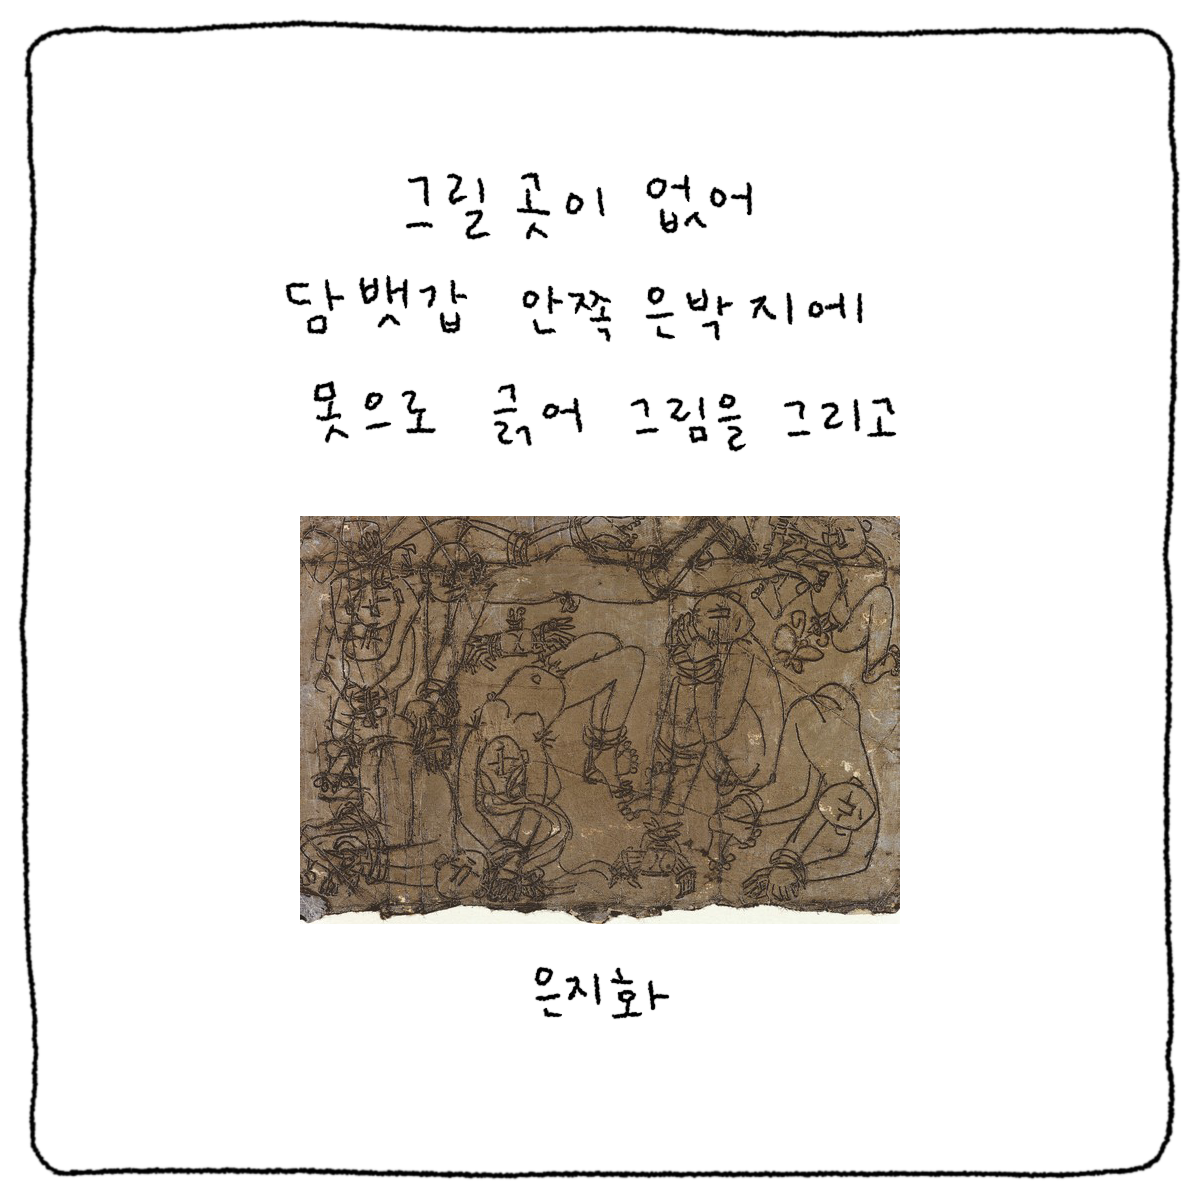 그릴 곳이 없어
담뱃갑 안쪽 은박지에
못으로 긁어 그림을 그리고
은지화